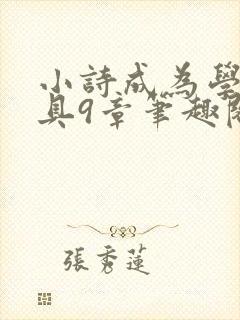 小詩成為學
具9章筆趣閣
張秀蓮